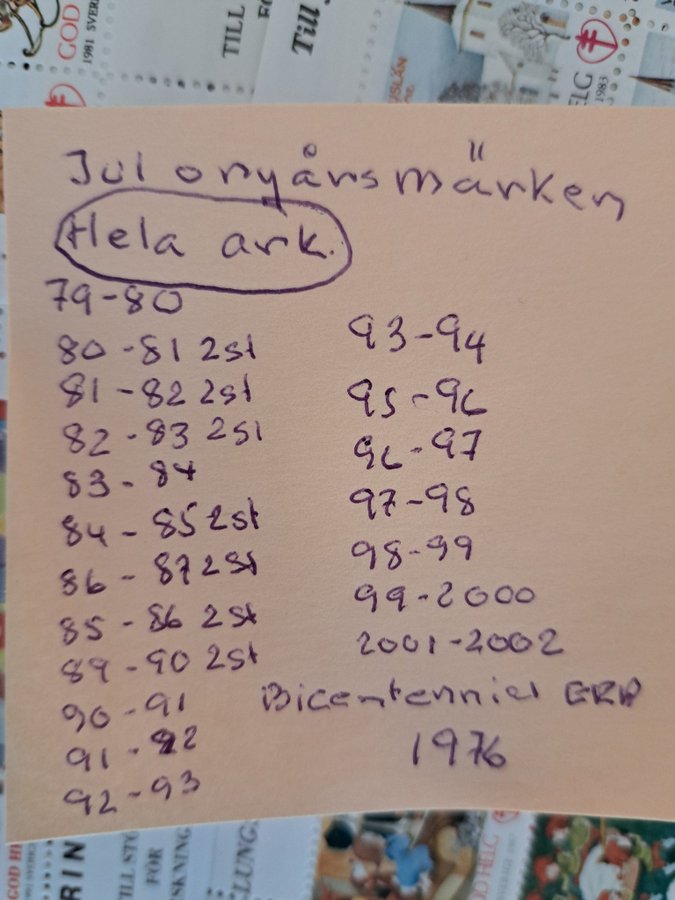 GOD
1981 SVER
TILL
FÖ
Till
SLÄN
ELG
1983
Jul o nyårsmärken
Hela ark.
79-80
80-81 2st
81-82 2st
82-83 2st
83-84
84-85 2st
86-87 2st
85-86 2st
89-90 2st
90-91
91-92
92-93
93-94
95-96
96-97
97-98
98-99
99-2000
2001-2002
Bicentennial ERA
1976
GOD H
RIN
TILL STÖ
FÖR
SKNING
LUNGS
D HELG